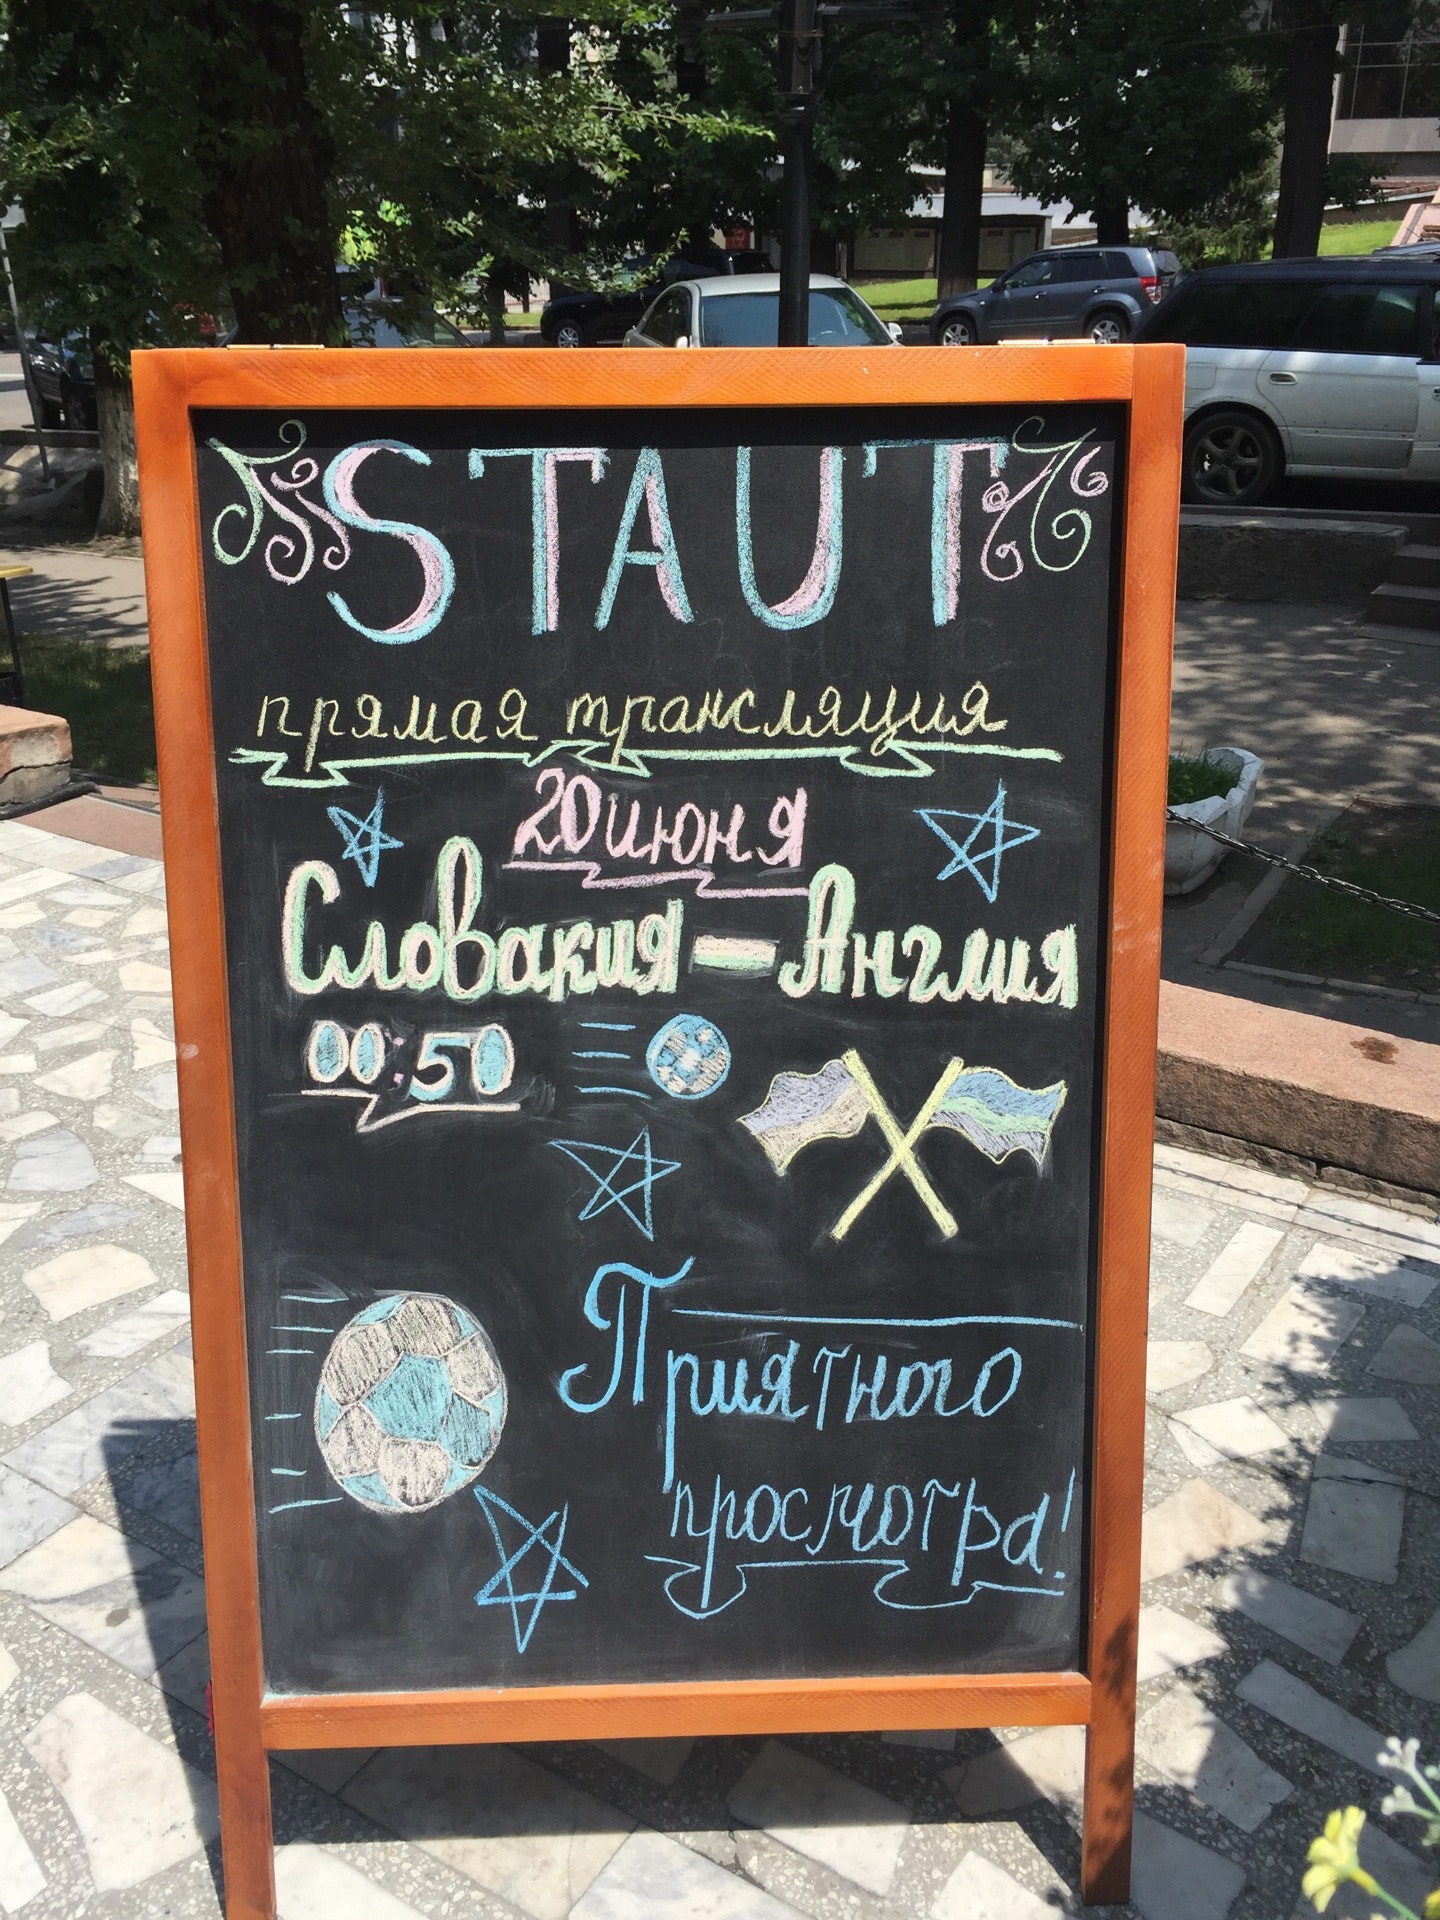 STAUT
прямая трансляция
20 июня
Словакия - Англия
00:50
Приятного
просмотра!